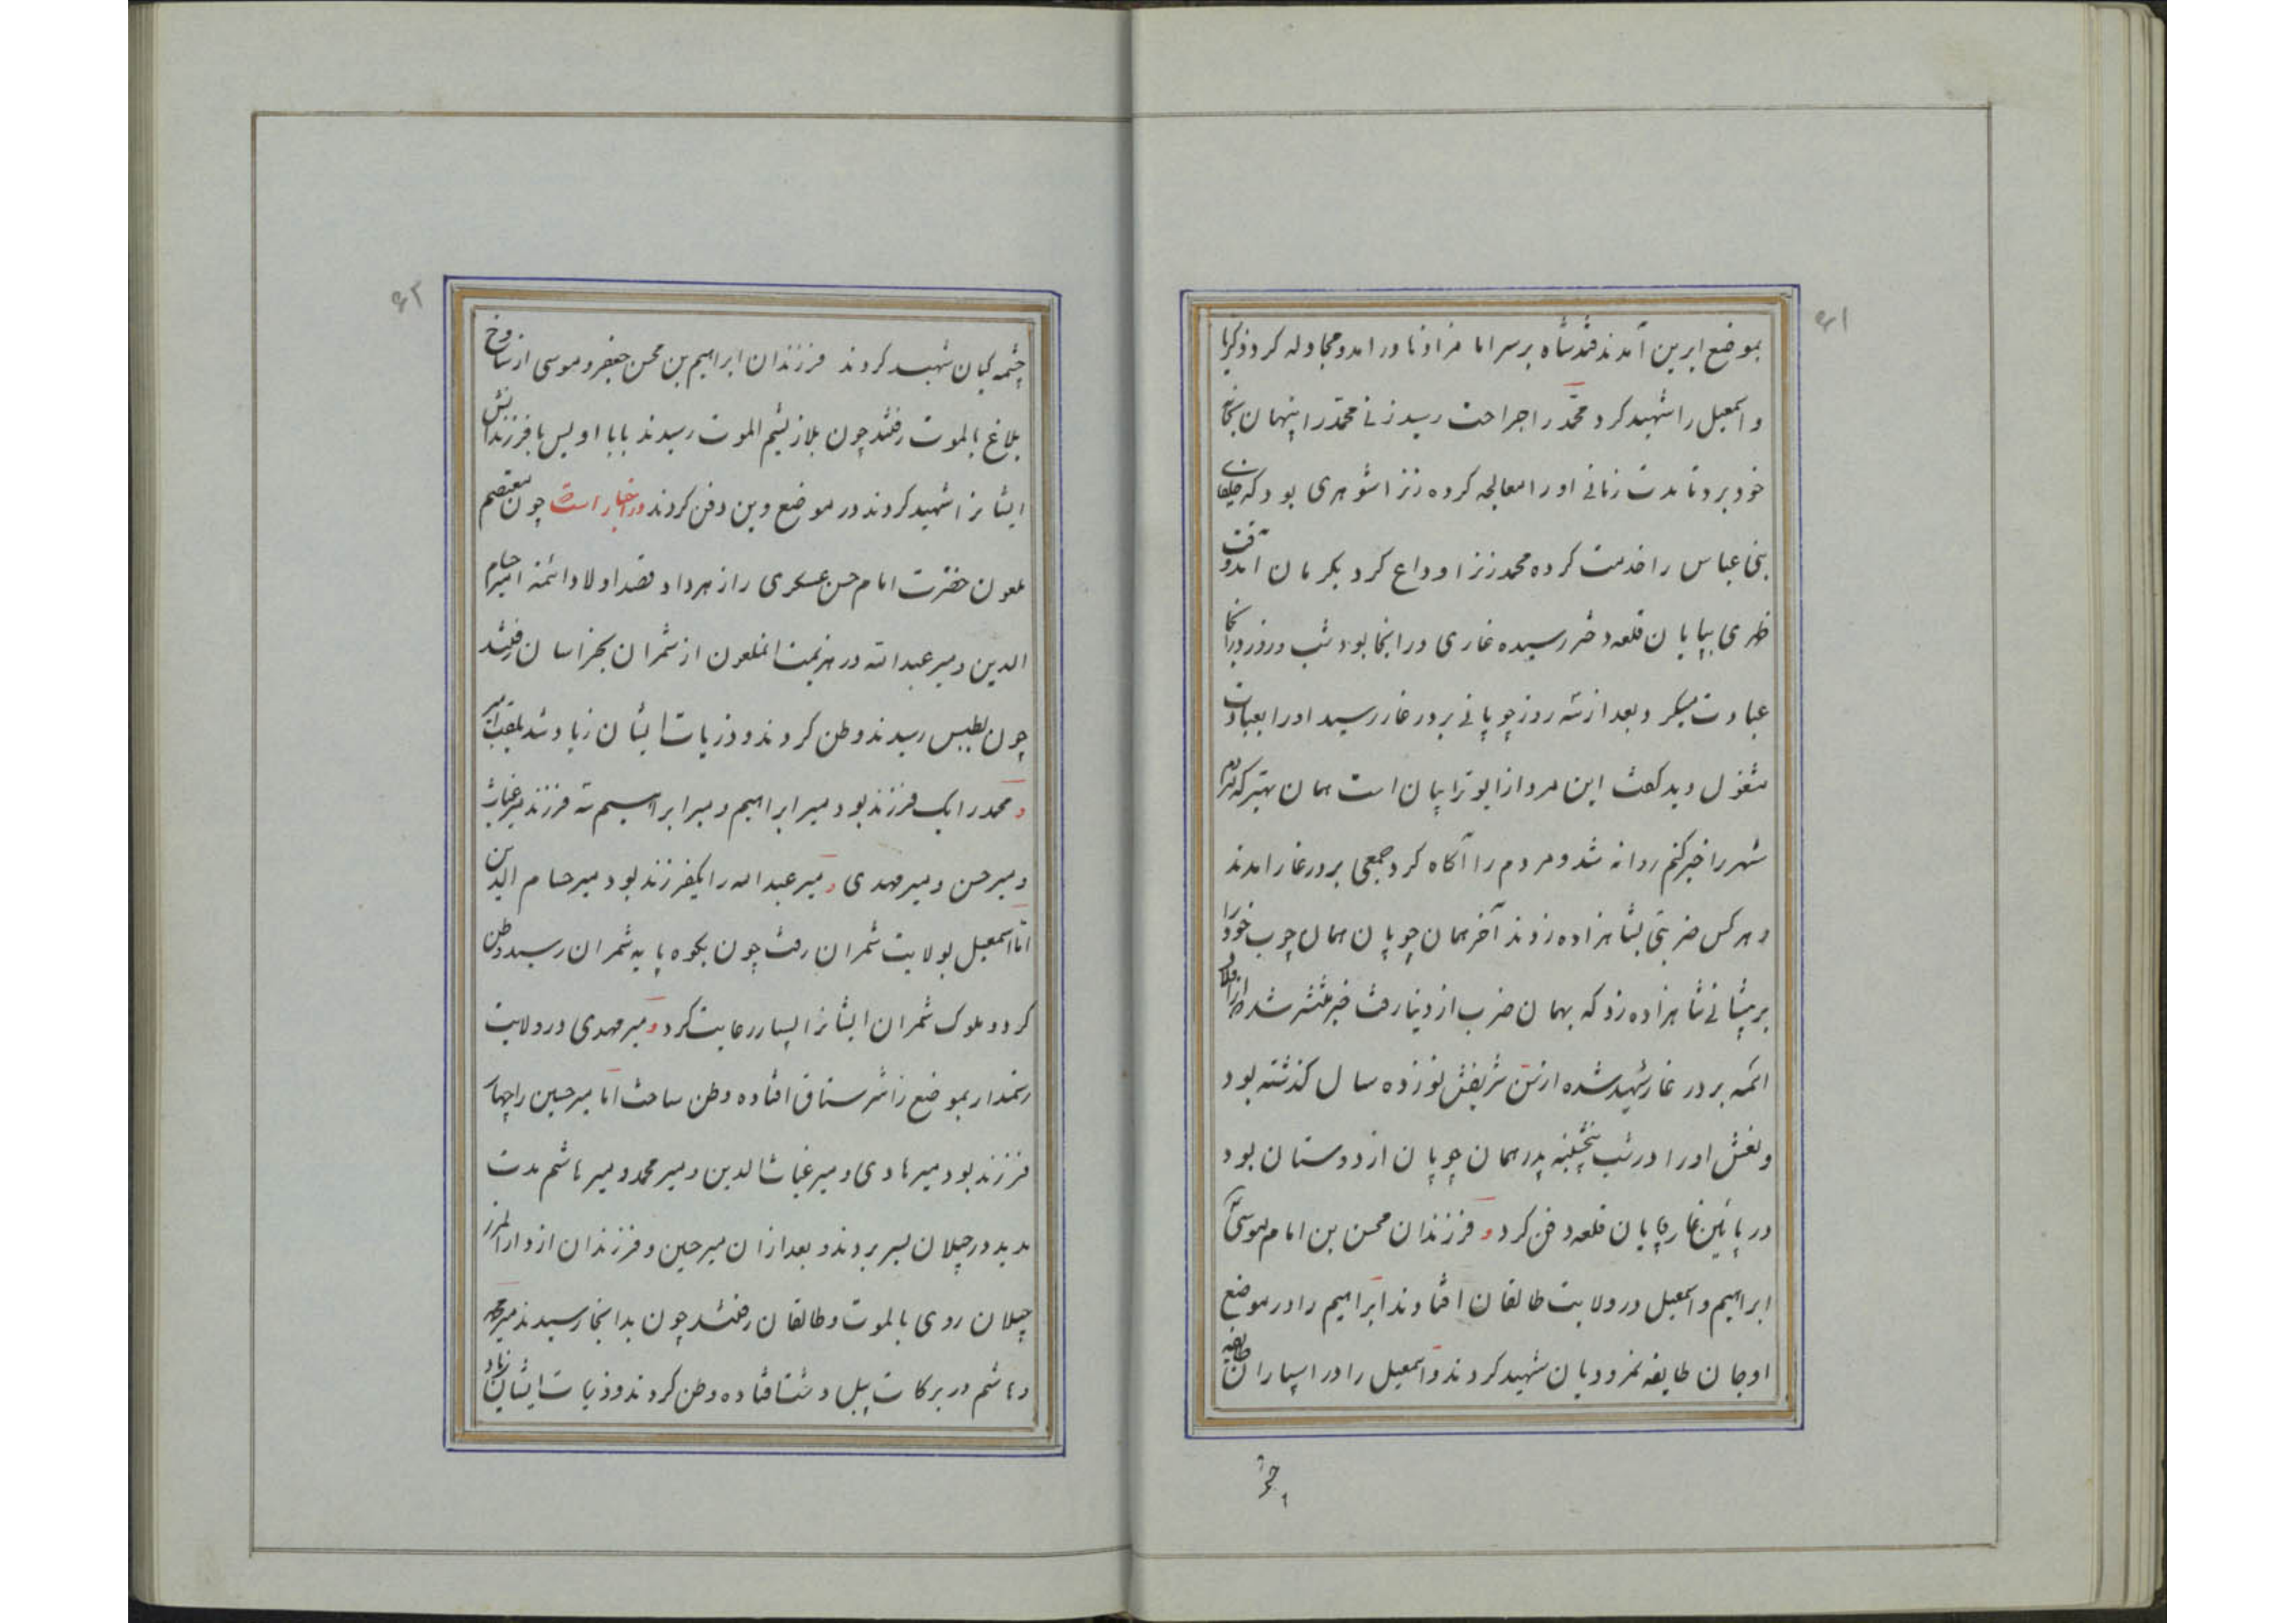 ۶۱
بموضع ابرین آمدند قندشاه بر سر امامزاده‌ها در آمد و مجادله کرد و ذکریا
و اسمعیل را شهید کرد و محمّد را جراحت رسید زنی محمّد را پنهان بخانه
خود برد تا مدت زمانی او را معالجه کرده زنرا شوهری بود که خلفای
بنی عباس را خدمت کرده محمد زنرا وداع کرد بکرمان آمد وقت
ظهری بپایان قلعه دختر رسیده غاری در آنجا بود شب و روز در آنجا
عبادت میکرد و بعد از سه روز چوپانی بر در غار رسید او را بعبادت
مشغول دید گفت این مرد از ابوترابیان است همان بهتر که مردم
شهر را خبر کنم روانه شد و مردم را آگاه کرد جمعی بر در غار آمدند
و هر کس ضربتی بشاهزاده زدند آخر همان چوپان همان چوب خود را
بر پیشانی شاهزاده زد که بهمان ضرب از دنیا رفت خبر منتشر شد که از اولاد
ائمه بر در غار شهید شده از سن شریفش نوزده سال گذشته بود
و نعش او را در شب پنجشنبه پدر همان چوپان از دوستان بود
در پائین غار بپایان قلعه دفن کرد و فرزندان محسن بن امام موسی
ابراهیم و اسمعیل در ولایت طالقان افتادند ابراهیم را در موضع
اوجان طایفه نمرودیان شهید کردند و اسمعیل را در اسپاران طایفه
۶۲
چشمه کیان شهید کردند فرزندان ابراهیم بن محسن جعفر و موسی از
بلاغ بالموت رفتند چون بلازنشم الموت رسیدند بابا اویس با فرزندانش
ایشانرا شهید کردند در موضع وین دفن کردند در اخبار است چون معتصم
ملعون حضرت امام حسن عسکری را زهر داد قصد اولاد ائمه امیر حسام
الدین و میر عبدالله در هزیمت انملعون از شمران بخراسان رفتند
چون بطبس رسیدند وطن کردند و ذریات ایشان زیاد شد بلقب میر
و محمد را یک فرزند بود میر ابراهیم و میر ابراهیم سه فرزند میر غیاث
و میر حسن و میر مهدی و میر عبدالله را یکفرزند بود میر حسام الدین
امّا اسمعیل بولایت شمران رفت چون بکوه پایه شمران رسید وطن
کرد و ملوک شمران ایشانرا بسیار رعایت کرد و میر مهدی در ولایت
رستمدار بموضع زانثررستاق افتاده وطن ساخت اما میر حسین را چهار
فرزند بود میر هادی و میر غیاث الدین و میر محمد و میر هاشم مدت
مدید در چیلان بسر بردند و بعد از ان میر حسین و فرزندان از دار المرز
چیلان روی بالموت و طالقان رفتند چون بدانجا رسیدند میر محمد
و هاشم در برکات پیل دشت افتاده وطن کردند و ذریات ایشان زیاد